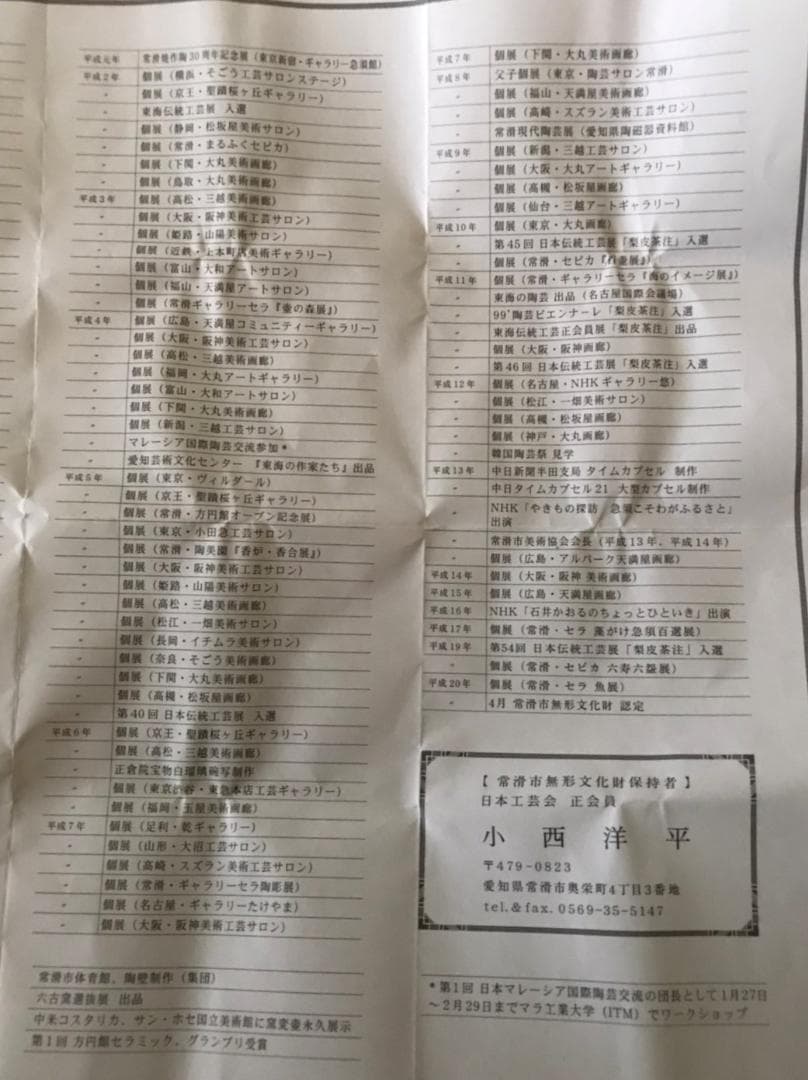 平成元年 常滑焼作陶30周年記念展(東京新宿・ギャラリー急須館)
平成2年 個展(横浜・そごう工芸サロンステージ)
〃 個展(京王・聖蹟桜ヶ丘ギャラリー)
〃 東海伝統工芸展 入選
〃 個展(静岡・松坂屋美術サロン)
〃 個展(常滑・まるふくセピカ)
〃 個展(下関・大丸美術画廊)
〃 個展(鳥取・大丸美術画廊)
平成3年 個展(高松・三越美術画廊)
〃 個展(大阪・阪神美術工芸サロン)
〃 個展(姫路・山陽美術サロン)
〃 個展(近鉄・上本町店美術ギャラリー)
〃 個展(富山・大和アートサロン)
〃 個展(福山・天満屋アートサロン)
〃 個展(常滑ギャラリーセラ『壷の森展』)
平成4年 個展(広島・天満屋コミュニティーギャラリー)
〃 個展(大阪・阪神美術工芸サロン)
〃 個展(高松・三越美術画廊)
〃 個展(福岡・大丸アートギャラリー)
〃 個展(富山・大和アートサロン)
〃 個展(下関・大丸美術画廊)
〃 個展(新潟・三越工芸サロン)
〃 マレーシア国際陶芸交流参加*
〃 愛知芸術文化センター 『東海の作家たち』出品
平成5年 個展(東京・ヴィルダール)
〃 個展(京王・聖蹟桜ヶ丘ギャラリー)
〃 個展(常滑・方円館オープン記念展)
〃 個展(東京・小田急工芸サロン)
〃 個展(常滑・陶美園『香炉・香合展』)
〃 個展(大阪・阪神美術工芸サロン)
〃 個展(姫路・山陽美術サロン)
〃 個展(高松・三越美術画廊)
〃 個展(松江・一畑美術サロン)
〃 個展(長岡・イチムラ美術サロン)
〃 個展(奈良・そごう美術画廊)
〃 個展(下関・大丸美術画廊)
〃 個展(高槻・松坂屋画廊)
〃 第40回 日本伝統工芸展 入選
平成6年 個展(京王・聖蹟桜ヶ丘ギャラリー)
〃 個展(高松・三越美術画廊)
〃 正倉院宝物白瑠璃碗写制作
〃 個展(東京渋谷・東急本店工芸ギャラリー)
〃 個展(福岡・玉屋美術画廊)
平成7年 個展(足利・乾ギャラリー)
〃 個展(山形・大沼工芸サロン)
〃 個展(高崎・スズラン美術工芸サロン)
〃 個展(常滑・ギャラリーセラ陶彫展)
〃 個展(名古屋・ギャラリーたけやま)
〃 個展(大阪・阪神美術工芸サロン)
常滑市体育館、陶壁制作(集団)
六古窯選抜展 出品
中米コスタリカ、サン・ホセ国立美術館に窯変壷永久展示
第1回 方円館セラミック、グランプリ受賞
平成7年 個展(下関・大丸美術画廊)
平成8年 父子個展(東京・陶芸サロン常滑)
〃 個展(福山・天満屋美術画廊)
〃 個展(高崎・スズラン美術工芸サロン)
〃 常滑現代陶芸展(愛知県陶磁器資料館)
平成9年 個展(新潟・三越工芸サロン)
〃 個展(大阪・大丸アートギャラリー)
〃 個展(高槻・松坂屋画廊)
〃 個展(仙台・三越アートギャラリー)
平成10年 個展(東京・大丸画廊)
〃 第45回 日本伝統工芸展「梨皮茶注」入選
〃 個展(常滑・セピカ『百壷展』)
平成11年 個展(常滑・ギャラリーセラ『海のイメージ展』)
〃 東海の陶芸 出品(名古屋国際会議場)
〃 99'陶芸ビエンナーレ「梨皮茶注」入選
〃 東海伝統工芸正会員展「梨皮茶注」出品
〃 個展(大阪・阪神画廊)
〃 第46回 日本伝統工芸展「梨皮茶注」入選
平成12年 個展(名古屋・NHKギャラリー悠)
〃 個展(松江・一畑美術サロン)
〃 個展(高槻・松坂屋画廊)
〃 個展(神戸・大丸画廊)
〃 韓国陶芸祭 見学
平成13年 中日新聞半田支局 タイムカプセル 制作
〃 中日タイムカプセル21 大型カプセル制作
〃 NHK「やきもの探訪 急須こそわがふるさと」
出演
〃 常滑市美術協会会長(平成13年、平成14年)
〃 個展(広島・アルパーク天満屋画廊)
平成14年 個展(大阪・阪神 美術画廊)
平成15年 個展(広島・天満屋画廊)
平成16年 NHK「石井かおるのちょっとひといき」出演
平成17年 個展(常滑・セラ 藻がけ急須百選展)
平成19年 第54回 日本伝統工芸展「梨皮茶注」入選
〃 個展(常滑・セピカ 六寿六盌展)
平成20年 個展(常滑・セラ 魚展)
〃 4月 常滑市無形文化財 認定
【常滑市無形文化財保持者】
日本工芸会 正会員
小西洋平
〒479-0823
愛知県常滑市奥栄町4丁目3番地
tel.&fax. 0569-35-5147
*第1回 日本マレーシア国際陶芸交流の団長として1月27日
~2月29日までマラ工業大学(ITM)でワークショップ